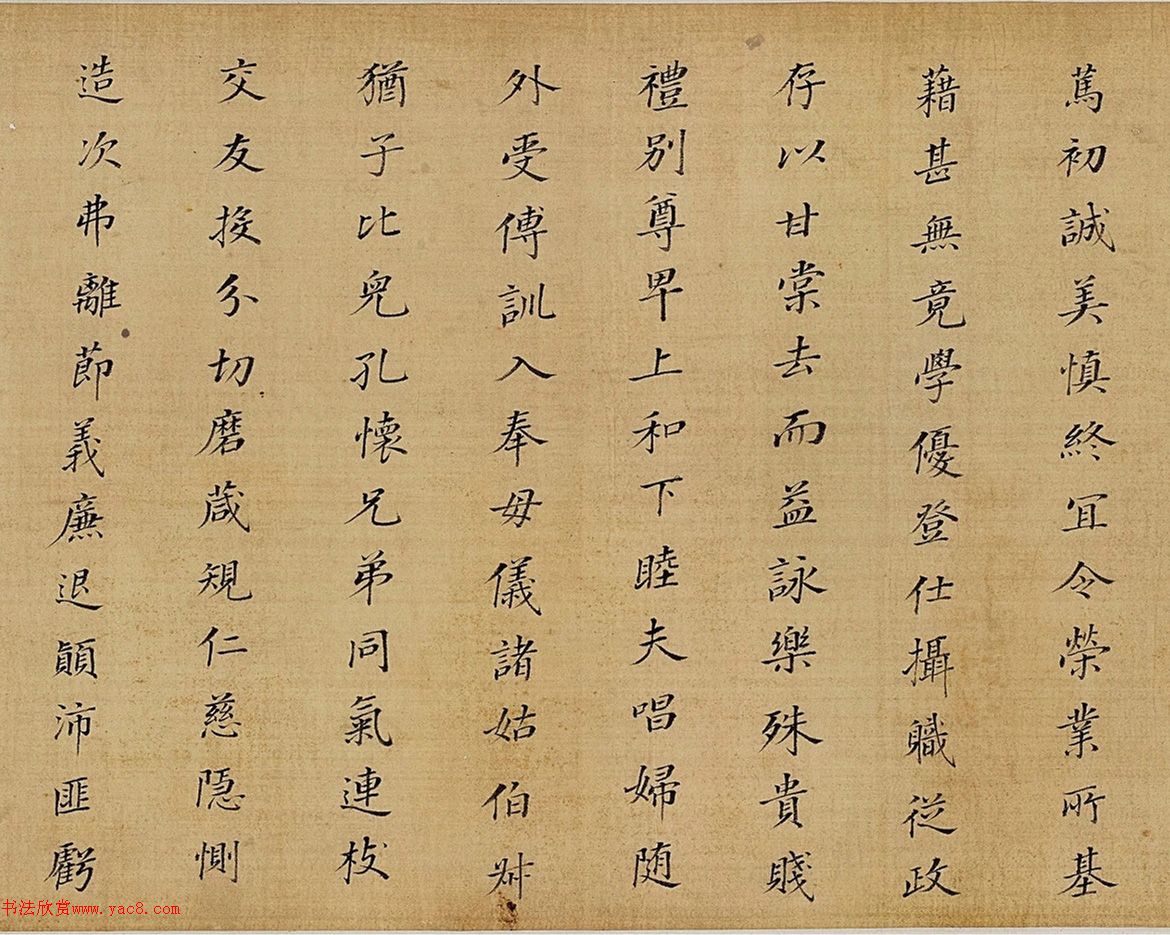 篤初誠美慎終宜令榮業所基
藉甚無竟學優登仕攝職從政
存以甘棠去而益詠樂殊貴賤
禮別尊卑上和下睦夫唱婦随
外受傅訓入奉母儀諸姑伯叔
猶子比兒孔懷兄弟同氣連枝
交友投分切磨葴規仁慈隠惻
造次弗離節義廉退顛沛匪虧
书法欣赏www.yac8.com